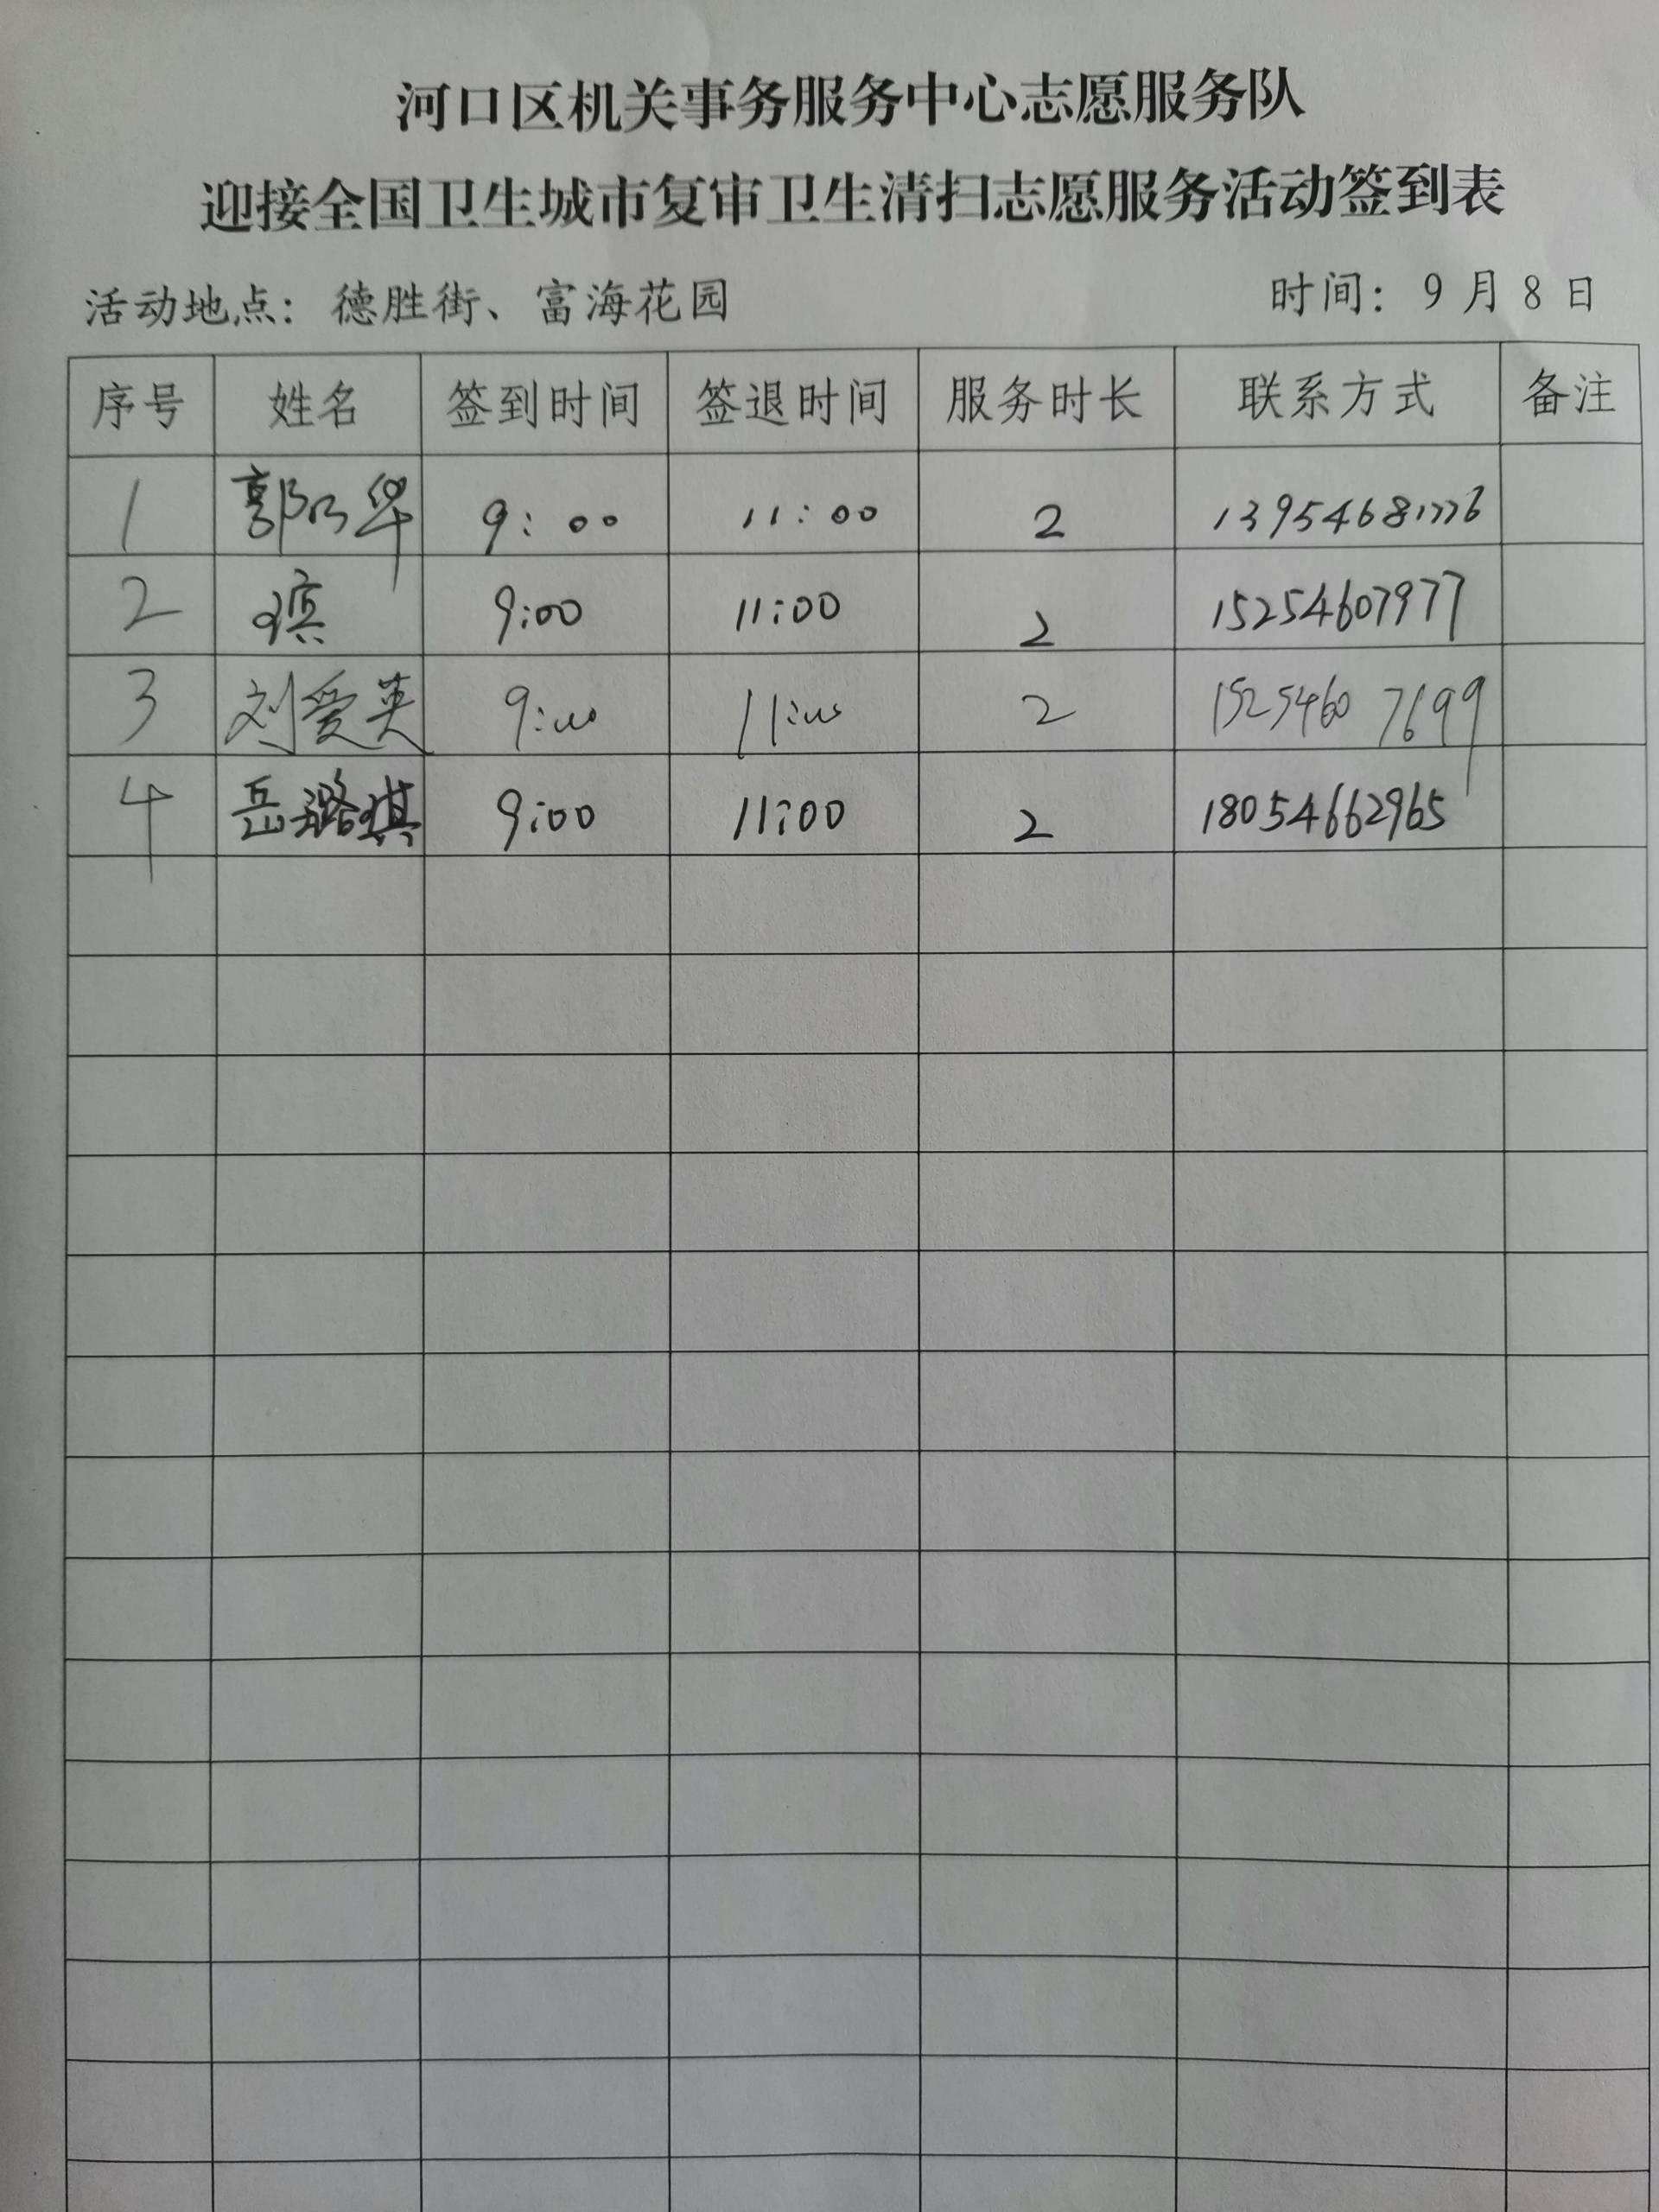 河口区机关事务服务中心志愿服务队
迎接全国卫生城市复审卫生清扫志愿服务活动签到表
活动地点：德胜街、富海花园 时间：9月8日
序号 姓名 签到时间 签退时间 服务时长 联系方式 备注
1 9:00 11:00 2
2 9:00 11:00 2 15254607977
3 刘爱英 9:00 11:00 2 15254607699
4 岳璐琪 9:00 11:00 2 18054662965